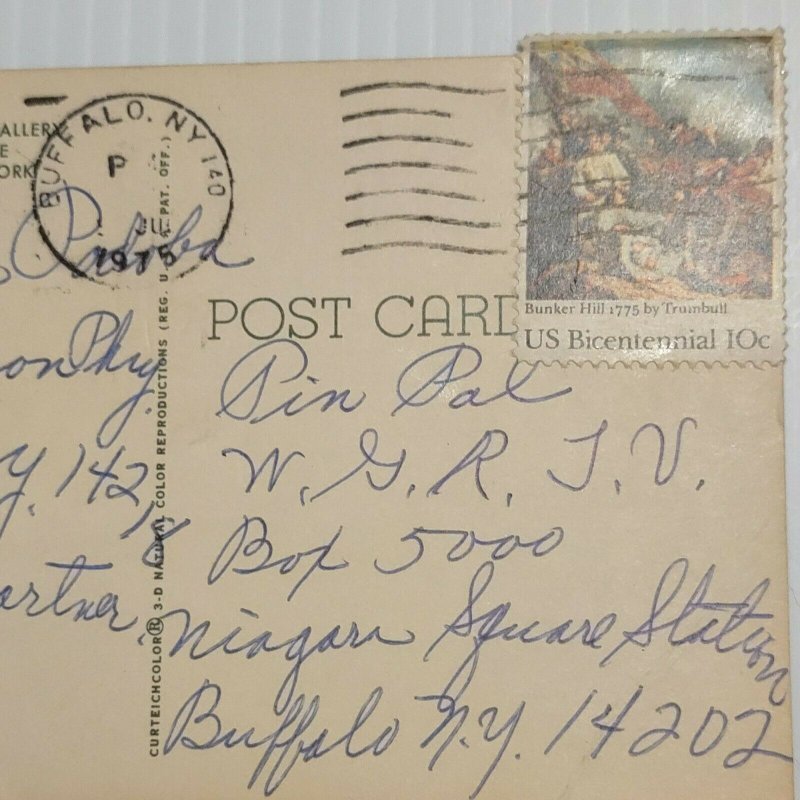 ALLERY
E
ORK
BUFFALO, NY 140
P
JUL
1975
Bunker Hill 1775 by Trumbull
US Bicentennial 10c
POST CARD
onPky.
Y. 14218
artner,
CURTEICHCOLOR® 3-D NATURAL COLOR REPRODUCTIONS (REG. U.S. PAT. OFF.)
Pin Pal
W. G. R. T. V.
Box 5000
Niagara Square Station
Buffalo N.Y. 14202